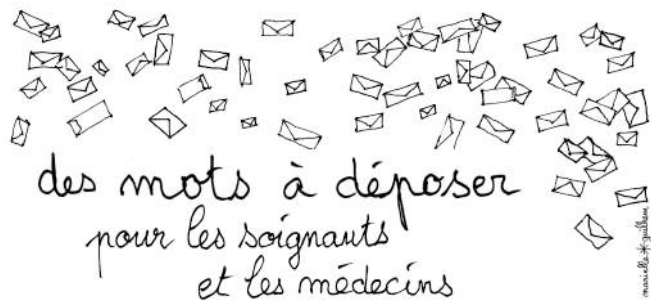 des mots à déposer
pour les soignants
et les médecins
marielle * guillem